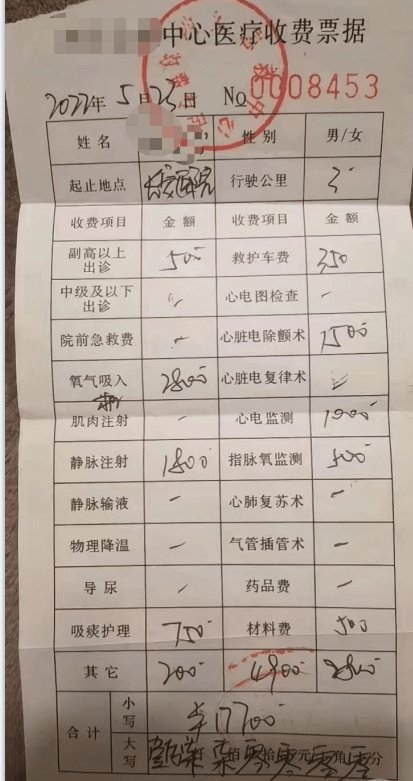 中心医疗收费票据
2022年 5月 23日 No 0008453
姓名 性别 男/女
起止地点 医院 行驶公里 3
收费项目 金额 收费项目 金额
副高以上出诊 500 救护车费 350
中级及以下出诊 - 心电图检查 -
院前急救费 - 心脏电除颤术 1500
氧气吸入 2800 心脏电复律术
肌肉注射 - 心电监测 1000
静脉注射 1800 指脉氧监测 500
静脉输液 - 心肺复苏术 -
物理降温 - 气管插管术 -
导尿 - 药品费 -
吸痰护理 750 材料费 500
其它 200 4900
合计 小写 ¥17700
大写 零 零 元零角零分